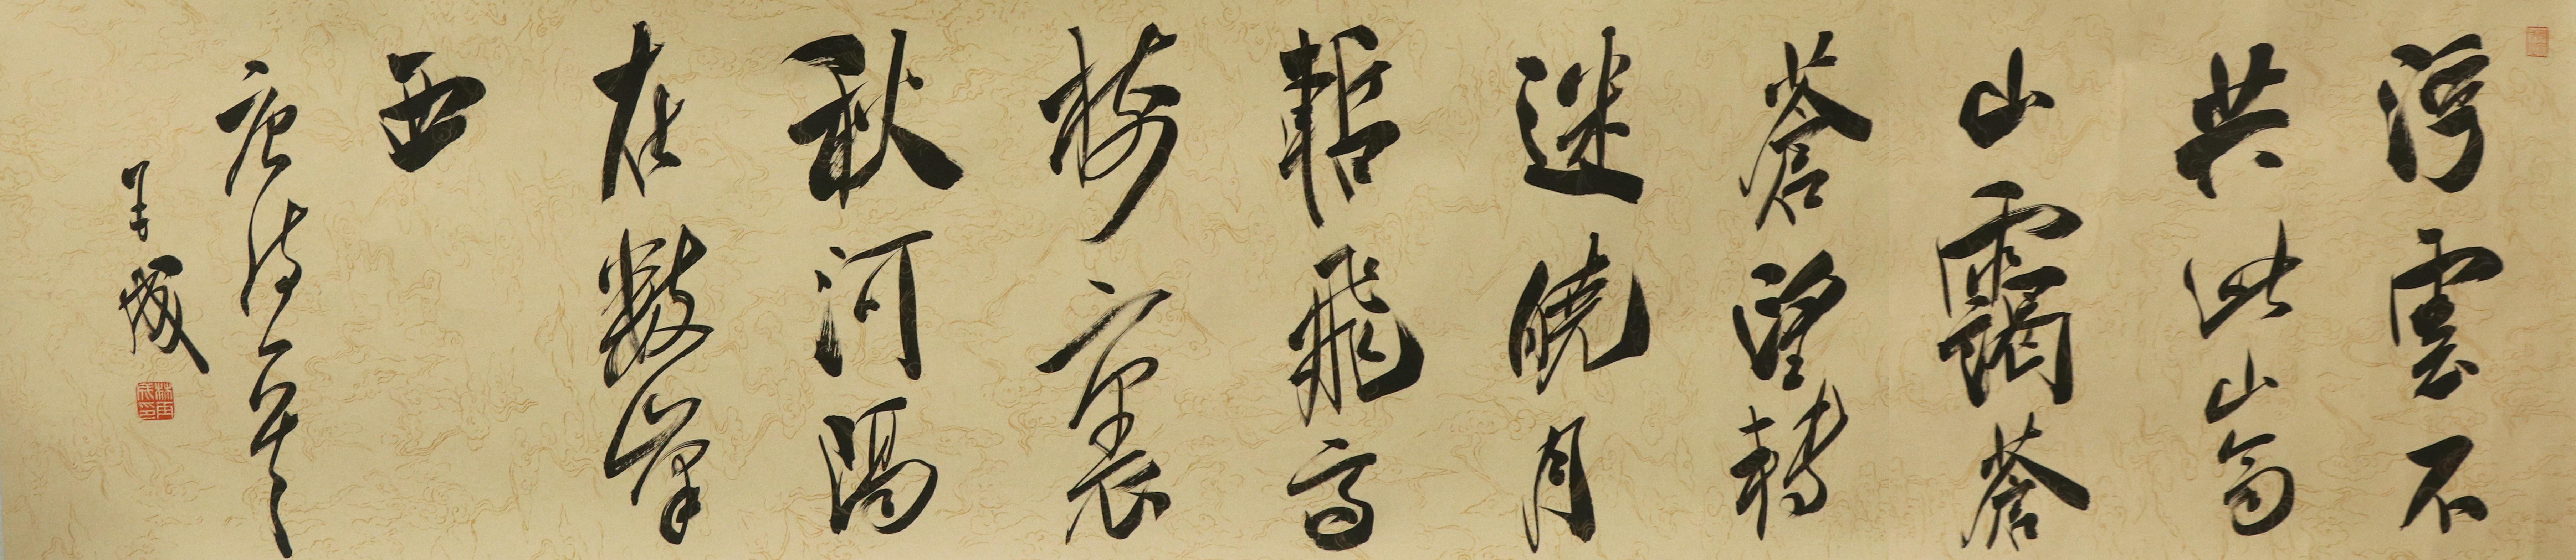 浮雲不
共此山齊
山靄蒼
蒼望轉
迷曉月
暫飛高
樹裏
秋河隔
在數峰
西
唐詩一首
再成